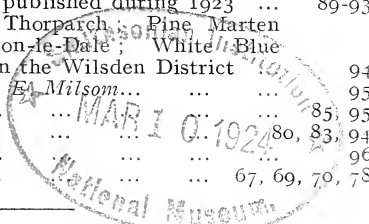 published during 1923 ... 89-93
Thorparch ; Pine Marten
on-le-Dale ; White Blue
n the Wilsden District ... 94
E. Milsom... ... ... 95
... ... ... 85, 95
... ... ... 80, 83, 94
... ... ... 96
... ... ... 67, 69, 70, 78
Smithsonian Institution
MAR 10 1924
National Museum